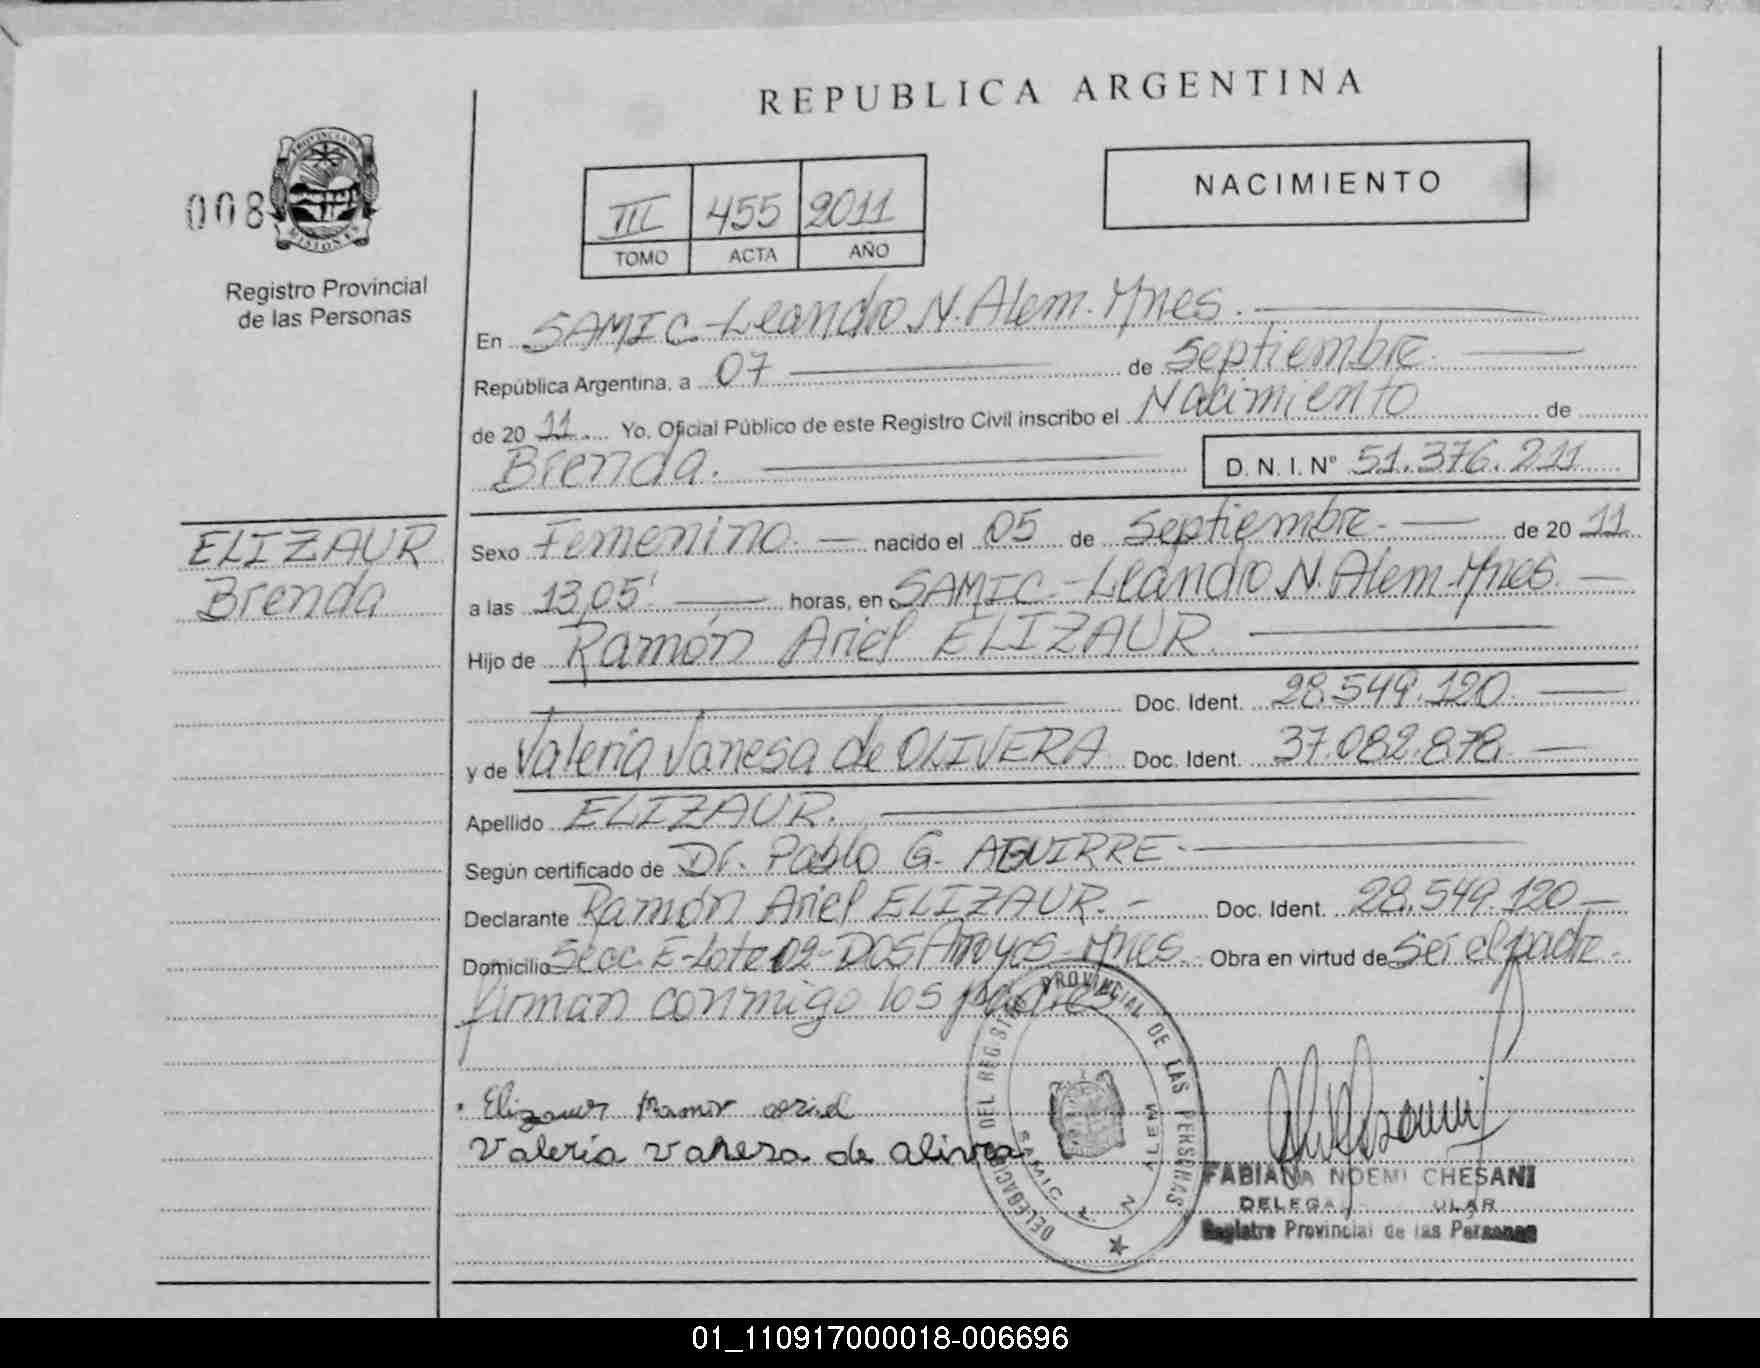 REPUBLICA ARGENTINA
NACIMIENTO
008
PROVINCIA DE
MISIONES
Registro Provincial
de las Personas
III 455 2011
TOMO ACTA AÑO
En SAMIC - Leandro N. Alem - Mnes.
República Argentina, a 07 de Septiembre.
de 20 11 Yo, Oficial Público de este Registro Civil inscribo el Nacimiento de
Brenda. D. N. I. Nº 51.376.211
ELIZAUR
Brenda
Sexo Femenino. nacido el 05 de Septiembre. de 20 11
a las 13,05' horas, en SAMIC - Leandro N. Alem - Mnes.
Hijo de Ramón Ariel ELIZAUR.
Doc. Ident. 28.549.120.
y de Valeria Vanesa de OLIVERA Doc. Ident. 37.082.878.
Apellido ELIZAUR.
Según certificado de Dr. Pablo G. AGUIRRE.
Declarante Ramón Ariel ELIZAUR. Doc. Ident. 28.549.120
Domicilio Secc. E - Lote 02 - Dos Arroyos - Mnes. Obra en virtud de Ser el padre.
firman conmigo los padres
Elizaur Ramon ariel
Valeria Vanesa de alivra
DELEGACION DEL REGISTRO PROVINCIAL DE LAS PERSONAS
SAMIC L. N. ALEM
FABIANA NOEMI CHESANI
Registro Provincial de las Personas
01_110917000018-006696